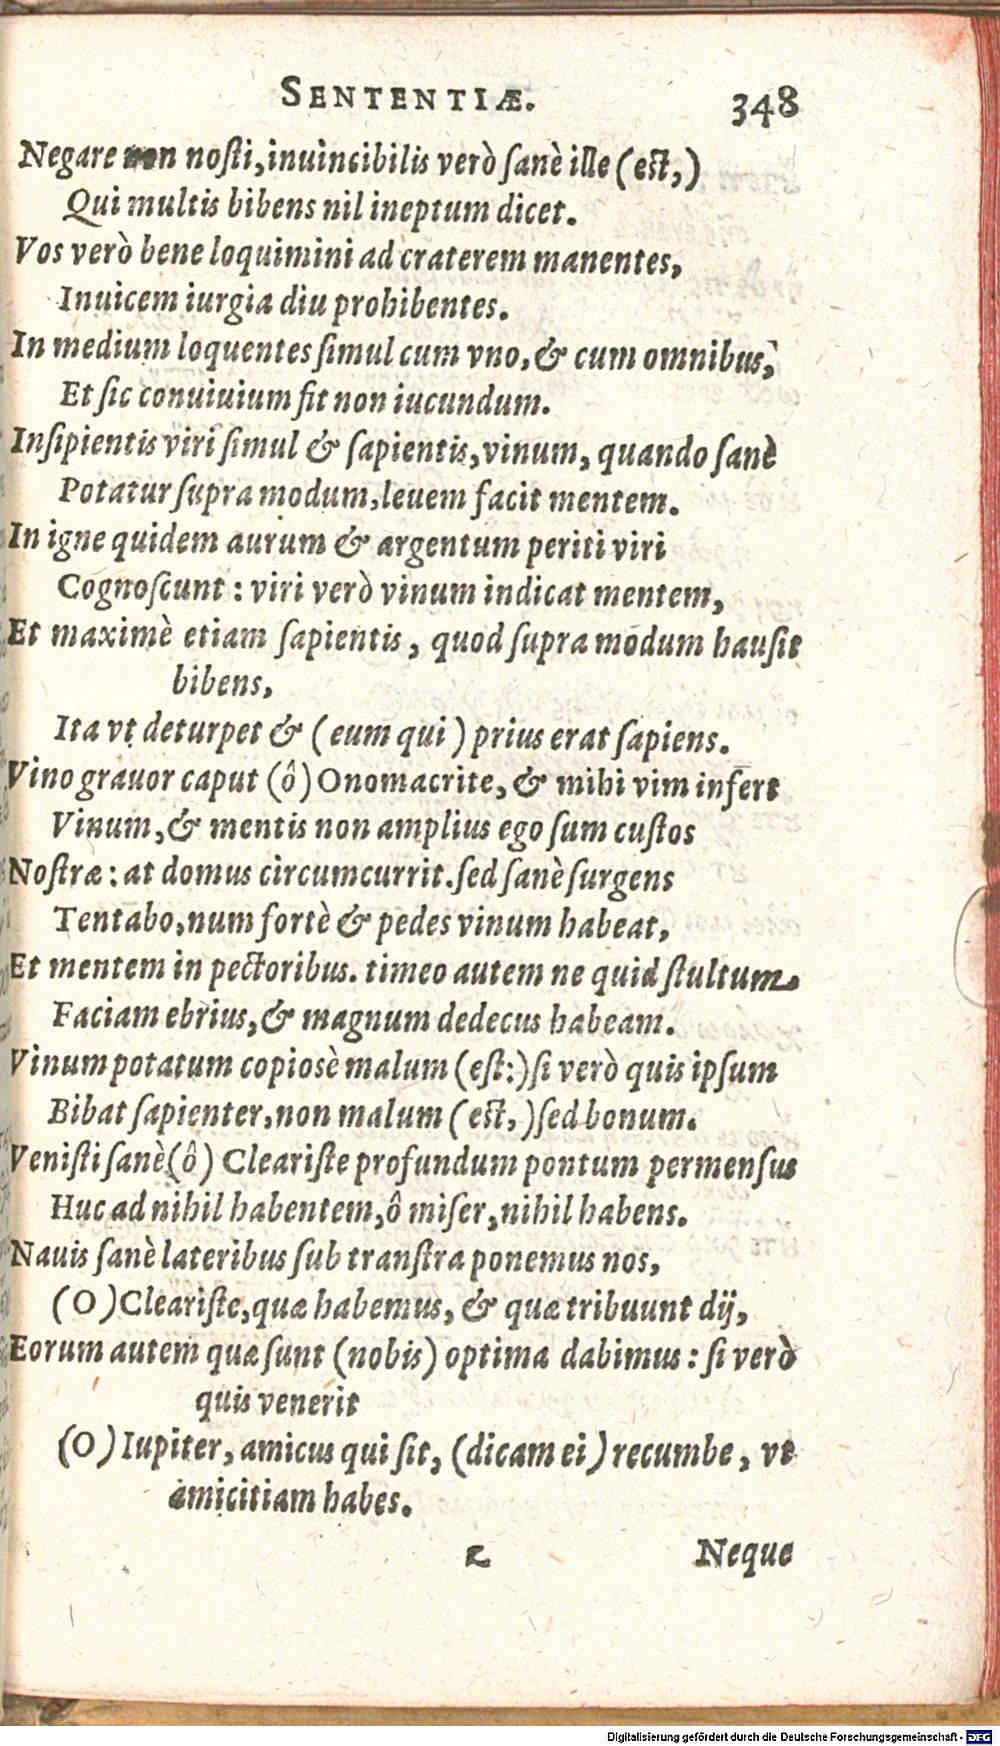 SENTENTIÆ. 348
Negare non nosti, inuincibilis verò sanè ille (est,)
Qui multis bibens nil ineptum dicet.
Vos verò bene loquimini ad craterem manentes,
Inuicem iurgia diu prohibentes.
In medium loquentes simul cum vno, & cum omnibus,
Et sic conuiuium fit non iucundum.
Insipientis viri simul & sapientis, vinum, quando sanè
Potatur supra modum, leuem facit mentem.
In igne quidem aurum & argentum periti viri
Cognoscunt : viri verò vinum indicat mentem,
Et maximè etiam sapientis, quod supra modum hausit
bibens,
Ita vt deturpet & (eum qui) prius erat sapiens.
Vino grauor caput (ô) Onomacrite, & mihi vim infert
Vinum, & mentis non amplius ego sum custos
Nostræ : at domus circumcurrit. sed sanè surgens
Tentabo, num fortè & pedes vinum habeat,
Et mentem in pectoribus. timeo autem ne quid stultum
Faciam ebrius, & magnum dedecus habeam.
Vinum potatum copiosè malum (est:) si verò quis ipsum
Bibat sapienter, non malum (est,) sed bonum.
Venisti sanè (ô) Cleariste profundum pontum permensus
Huc ad nihil habentem, ô miser, nihil habens.
Nauis sanè lateribus sub transtra ponemus nos,
(O) Clearíste, quæ habemus, & quæ tribuunt dij,
Eorum autem quæ sunt (nobis) optima dabimus : si verò
quis venerit
(O) Iupiter, amicus qui sit, (dicam ei) recumbe, vt
amicitiam habes.
2 Neque
Digitalisierung gefördert durch die Deutsche Forschungsgemeinschaft - DFG